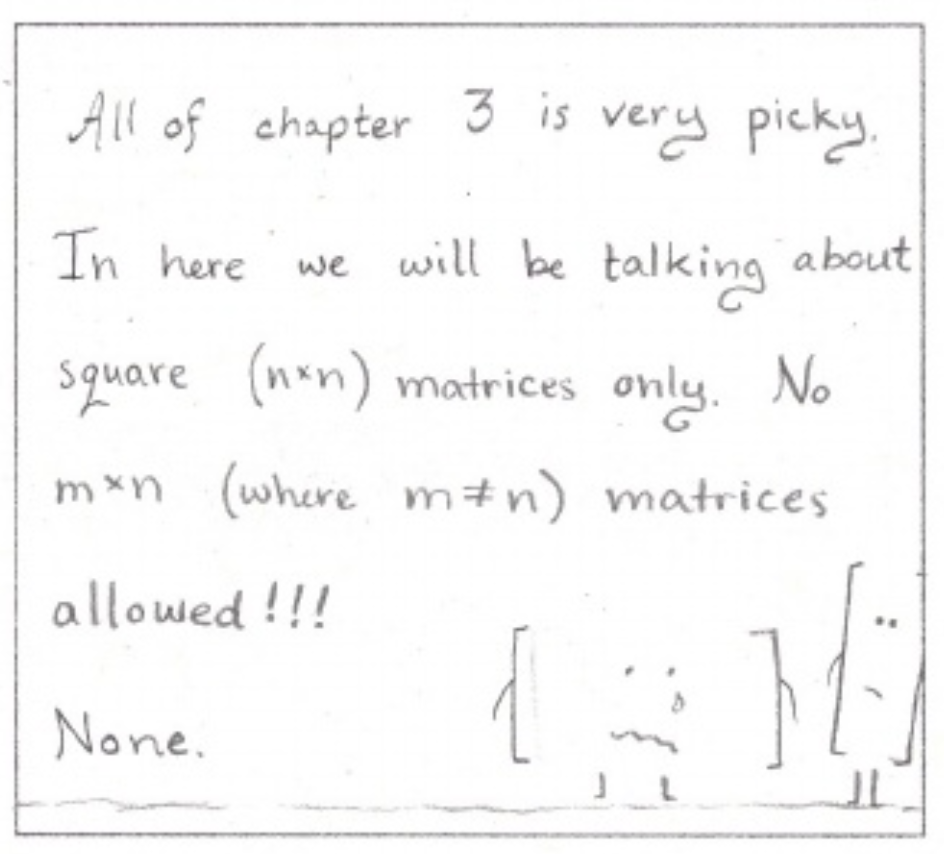 All of chapter 3 is very picky.
In here we will be talking about
square (n×n) matrices only. No
m×n (where m≠n) matrices
allowed!!!
None.